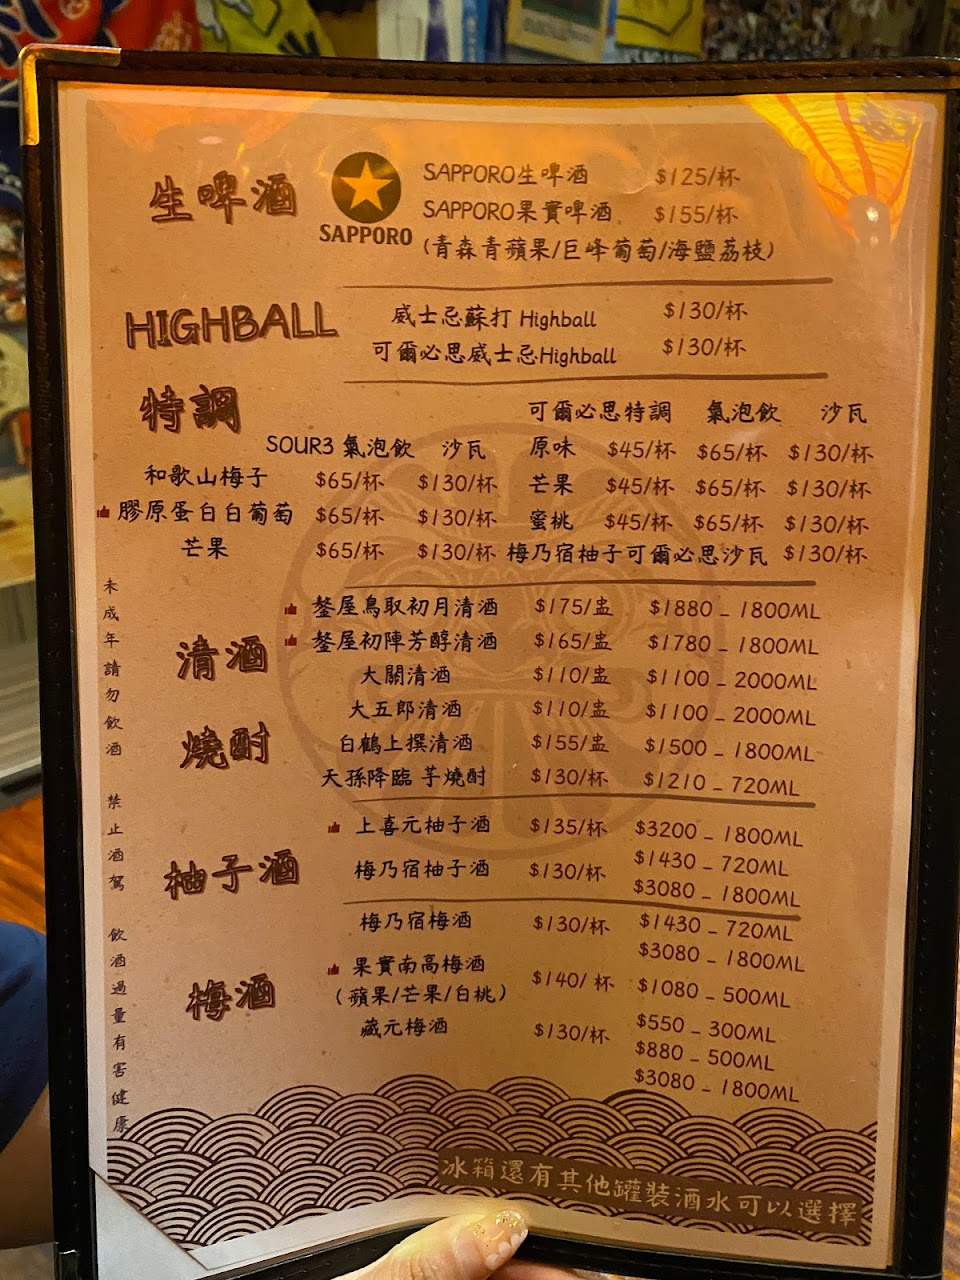 生啤酒
SAPPORO
SAPPORO生啤酒 $125/杯
SAPPORO果實啤酒 $155/杯
(青森青蘋果/巨峰葡萄/海鹽荔枝)
HIGHBALL
威士忌蘇打 Highball $130/杯
可爾必思威士忌Highball $130/杯
特調
SOUR3 氣泡飲 沙瓦
和歌山梅子 $65/杯 $130/杯
膠原蛋白白葡萄 $65/杯 $130/杯
芒果 $65/杯 $130/杯
可爾必思特調 氣泡飲 沙瓦
原味 $45/杯 $65/杯 $130/杯
芒果 $45/杯 $65/杯 $130/杯
蜜桃 $45/杯 $65/杯 $130/杯
梅乃宿柚子可爾必思沙瓦 $130/杯
清酒
燒酎
鍳屋鳥取初月清酒 $175/盅 $1880 - 1800ML
鍳屋初陣芳醇清酒 $165/盅 $1780 - 1800ML
大關清酒 $110/盅 $1100 - 2000ML
大五郎清酒 $110/盅 $1100 - 2000ML
白鶴上撰清酒 $155/盅 $1500 - 1800ML
天孫降臨 芋燒酎 $130/杯 $1210 - 720ML
柚子酒
上喜元柚子酒 $135/杯 $3200 - 1800ML
梅乃宿柚子酒 $130/杯 $1430 - 720ML
$3080 - 1800ML
梅酒
梅乃宿梅酒 $130/杯 $1430 - 720ML
$3080 - 1800ML
果實南高梅酒 $140/ 杯 $1080 - 500ML
(蘋果/芒果/白桃)
藏元梅酒 $130/杯 $550 - 300ML
$880 - 500ML
$3080 - 1800ML
未成年請勿飲酒 禁止酒駕 飲酒過量有害健康
冰箱還有其他罐裝酒水可以選擇